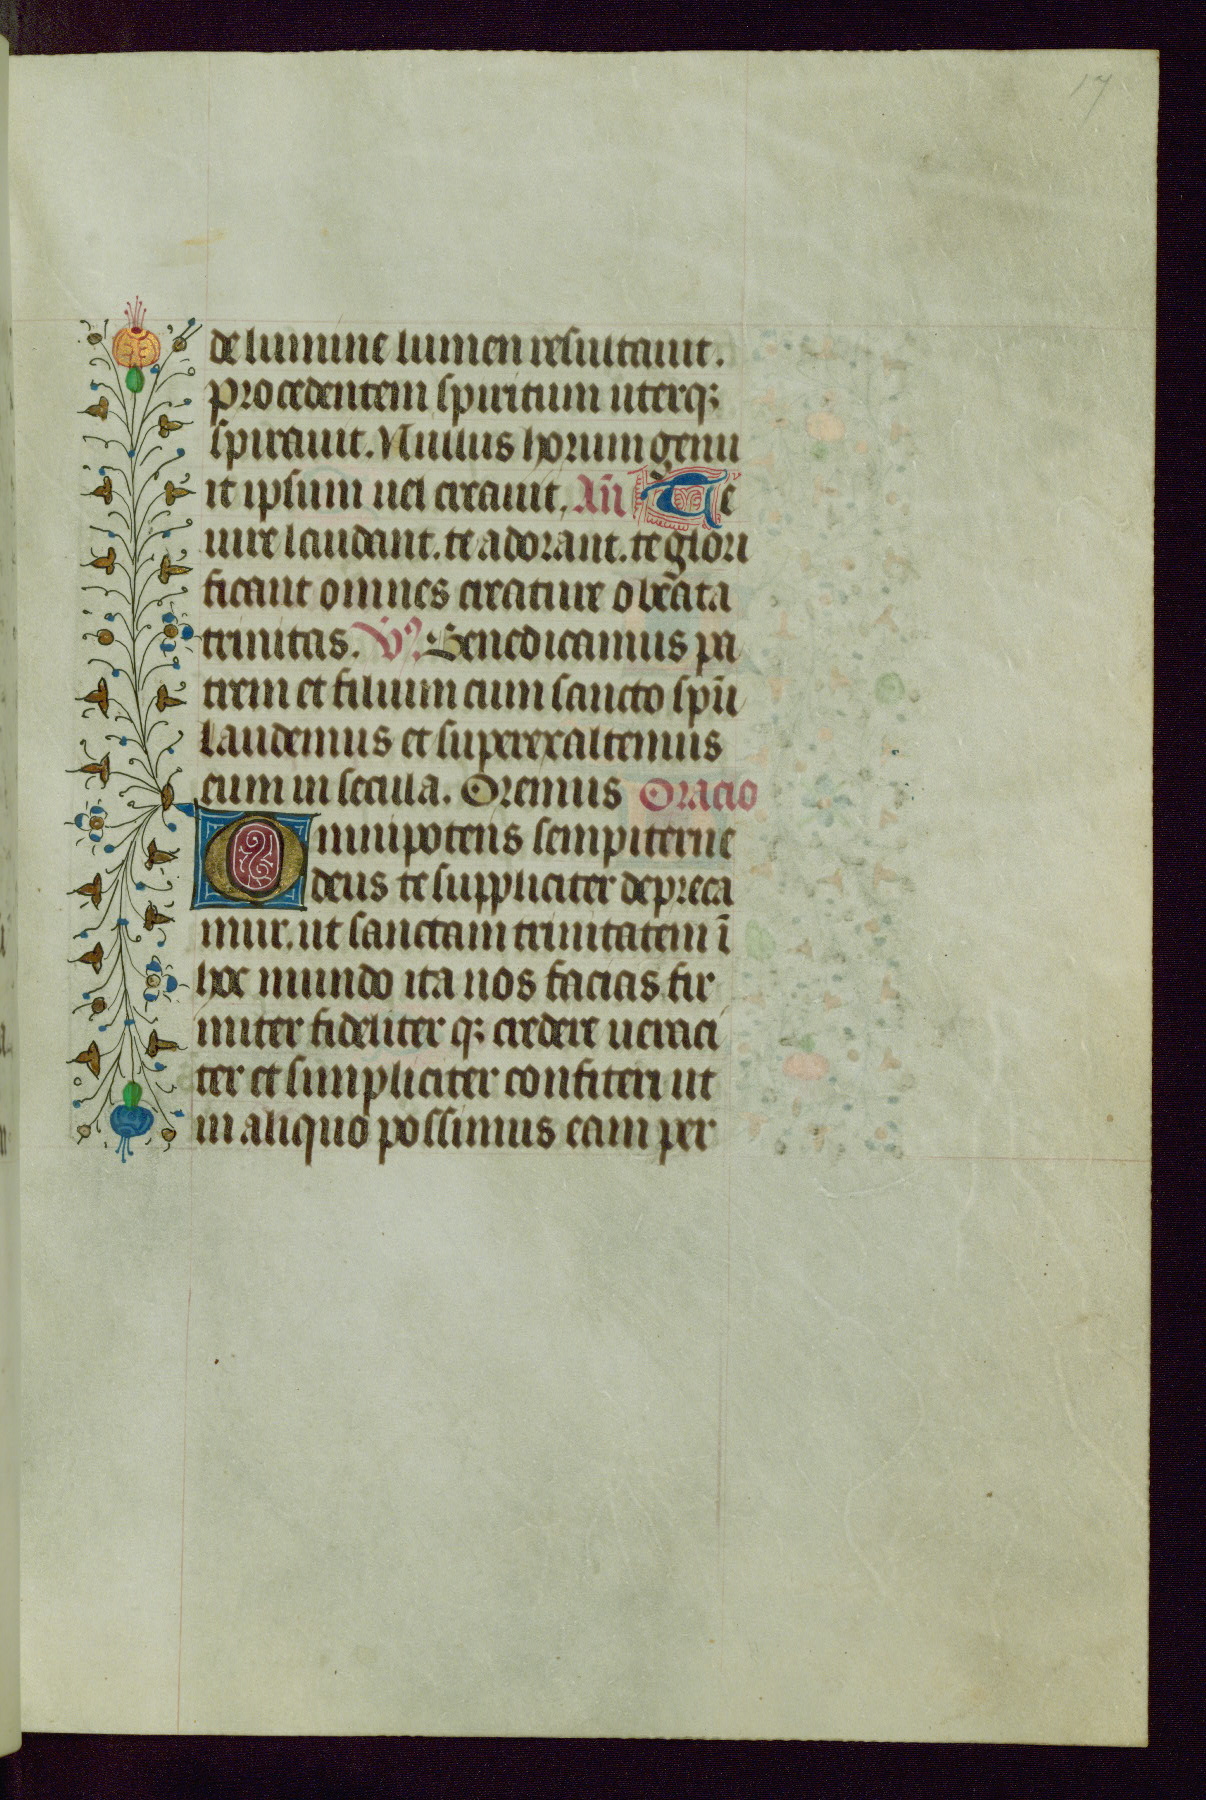 17
de lumine lumen resultauit.
procedentem spiritum uterq;
spirauit. Nullus horum genu
it ipsum uel creauit. Añ Te
iure laudant. te adorant. te glori
ficant omnes creature o bẽata
trinitas. V̊. Benedicamus pa
trem et filium cum sancto spũ
laudemus et superexaltemus
eum in secula. Oremus Oracio
Omnipotens sempiterne
deus te suppliciter depreca
mur. ut sanctam trinitatem ĩ
hoc mundo ita nos facias fir
miter fideliter q; credere ueraci
ter et simpliciter confiteri ut
in aliquo possimus eam per